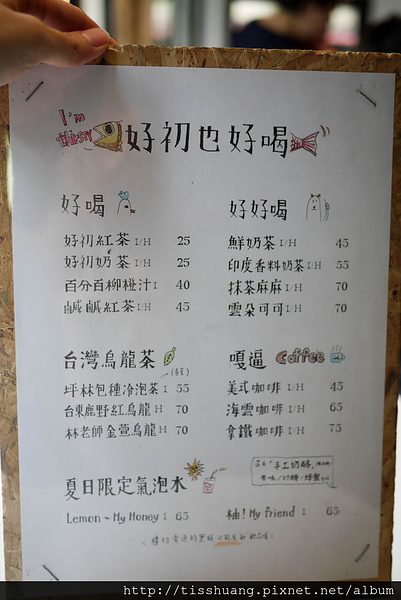 I'm thirsty
好初也好喝
好喝
好初紅茶 I/H 25
好初奶茶 I/H 25
百分百柳橙汁 I 40
鹹鹹紅茶 I/H 45
好好喝
鮮奶茶 I/H 45
印度香料奶茶 I/H 55
抹茶麻麻 I/H 70
雲朵可可 I/H 70
台灣烏龍茶
坪林包種冷泡茶 I 55
台東鹿野紅烏龍 H 70
林老師金萱烏龍 H 70
嘎逼 Coffee
美式咖啡 I/H 45
海雲咖啡 I/H 65
拿鐵咖啡 I/H 75
夏日限定氣泡水
Lemon~My Honey I 65
柚! My friend I 65
http://tisshuang.pixnet.net/album